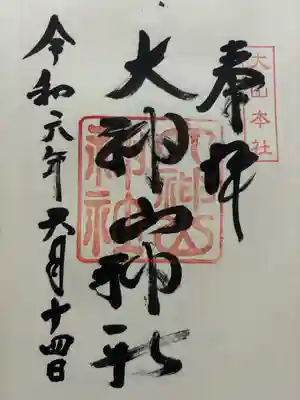 奉拝
大山本社
大神山神社
大神山神社
令和元年六月十四日